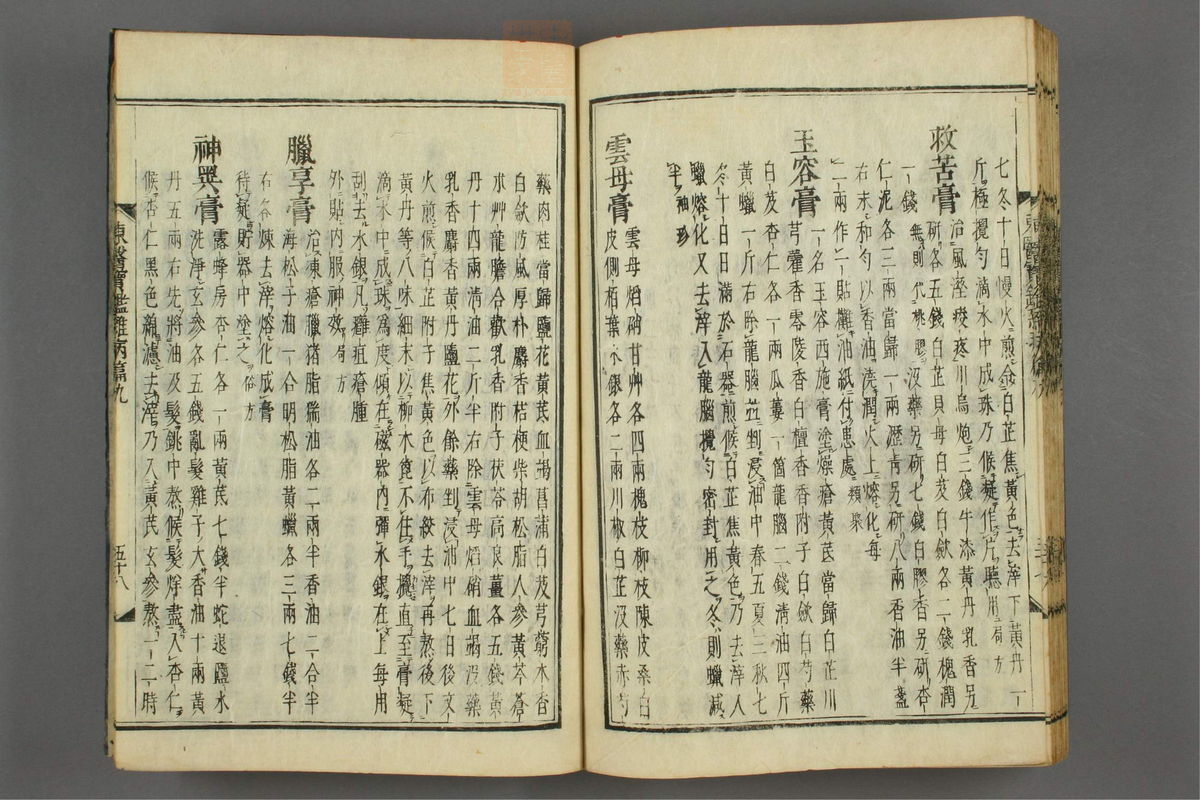 七冬十日慢火煎令白芷焦黃色去滓下黃丹一
斤極攪勻滴水中成珠乃候凝作片聽用局方
救苦膏
治風壅疼川烏炮三錢牛漆黃丹乳香另
研各五錢白芷貝母白芨白斂各二錢槐潤
一錢無則代桃膠沒藥另研七錢白膠香另研杏
仁泥各三兩當歸一兩瀝靑另研八兩香油半盞
右末和勻以香油澆潤火上熔化每
一兩作一貼攤油紙付患處類聚
玉容膏
一名玉容西施膏塗燥瘡黃芪當歸白芷川
芎藿香零陵香白檀香香附子白斂白芍藥
白芨杏仁各一兩瓜蔞一箇龍腦二錢淸油四斤
黃蠟一斤右除龍腦並剉浸油中春五夏三秋七
冬十日日滿於石器煎候白芷焦黃色乃去滓入
蠟熔化又去滓入龍腦攪勻密封用之冬則蠟減
半袖珍
雲母膏
雲母焰硝甘艸各四兩槐枝柳枝陳皮桑白
皮側栢葉水銀各二兩川椒白芷沒藥赤芍
藥肉桂當歸鹽花黃芪血竭菖蒲白芨芎藭木香
白斂防風厚朴麝香桔梗柴胡松脂人參黃芩蒼
朮艸龍膽合歡乳香附子茯苓高良薑各五錢黃
丹十四兩淸油二斤半右除雲母焰硝血竭沒藥
乳香麝香黃丹鹽花外餘藥剉浸油中七日後文
火煎候白芷附子焦黃色以布絞去滓再熬後下
黃丹等八味細末以柳木篦不住手攪直至膏凝
滴水中成珠爲度傾在磁器內彈水銀在上每用
刮去水銀凡癰疽瘡腫
外貼內服神效局方
臘享膏
治凍瘡臘猪脂猯油各二兩半香油二合半
海松子油一合明松脂黃蠟各三兩七錢半
右各煉去滓熔化成膏
待凝貯器中塗之俗方
神異膏
露蜂房杏仁各一兩黃芪七錢半蛇退鹽水
洗淨玄參各五錢亂髮雞子大香油十兩黃
丹五兩右先將油及髮銚中熬候髮焠盡入杏仁
候杏仁黑色濾去滓乃入黃芪玄參熬一二時
東醫寶鑑雜病篇九
五十八